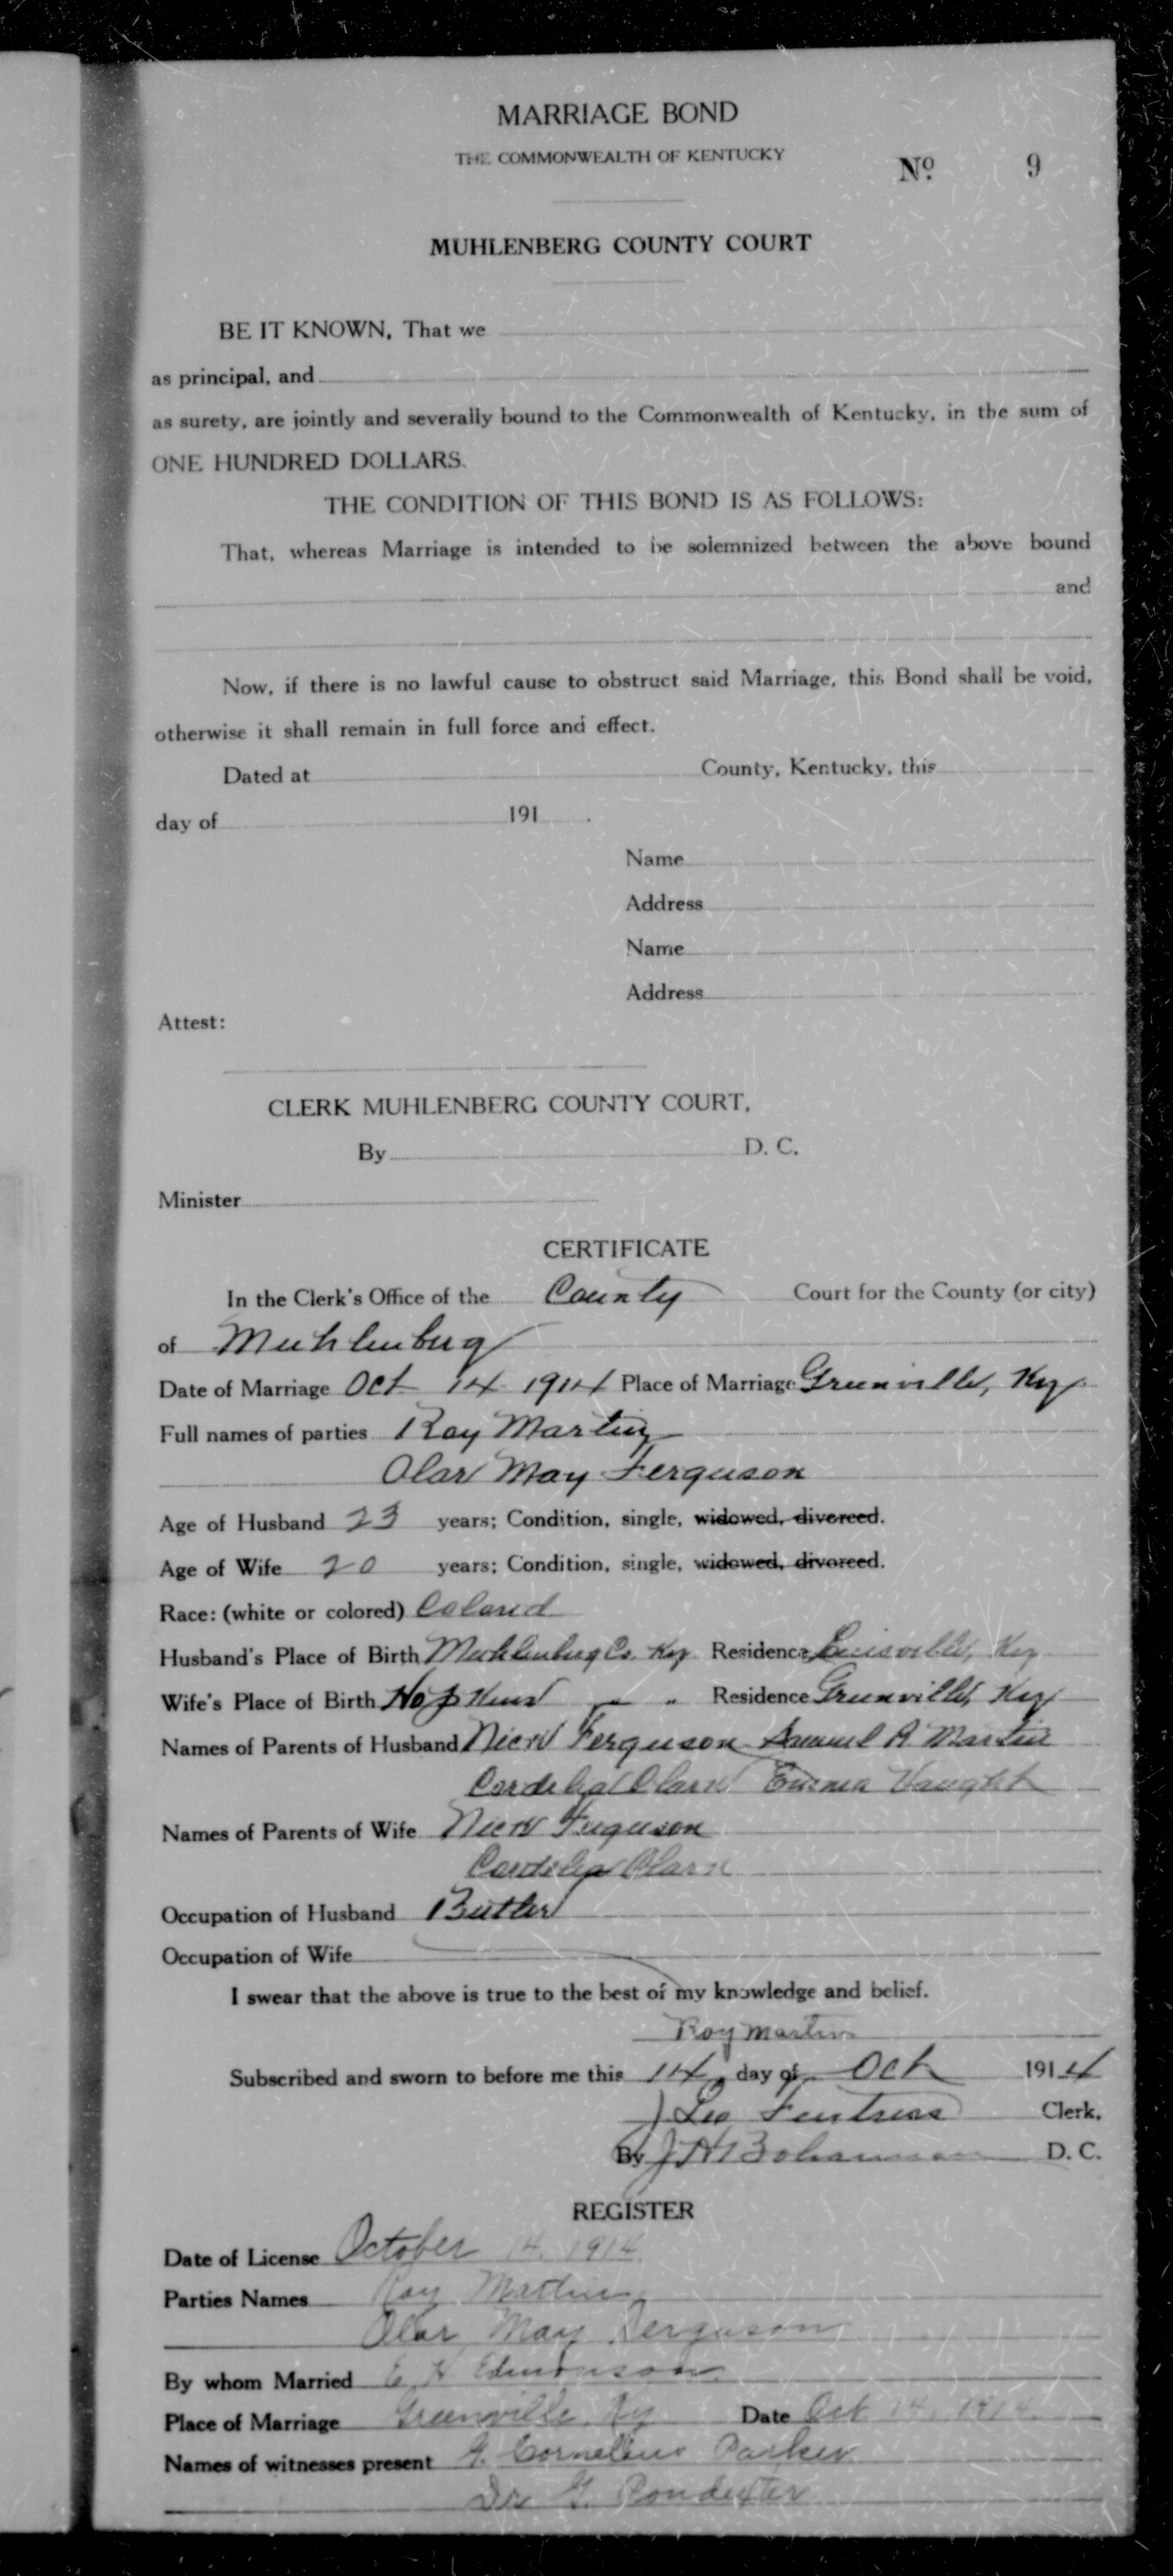 MARRIAGE BOND
THE COMMONWEALTH OF KENTUCKY
No. 9
MUHLENBERG COUNTY COURT
BE IT KNOWN, That we
as principal, and
as surety, are jointly and severally bound to the Commonwealth of Kentucky, in the sum of
ONE HUNDRED DOLLARS.
THE CONDITION OF THIS BOND IS AS FOLLOWS:
That, whereas Marriage is intended to be solemnized between the above bound
and
Now, if there is no lawful cause to obstruct said Marriage, this Bond shall be void,
otherwise it shall remain in full force and effect.
Dated at County, Kentucky, this
day of 191 .
Name
Address
Name
Address
Attest:
CLERK MUHLENBERG COUNTY COURT,
By D. C.
Minister
CERTIFICATE
In the Clerk's Office of the County Court for the County (or city)
of Muhlenberg
Date of Marriage Oct 14 1914 Place of Marriage Greenville, Ky
Full names of parties Roy Martin
Olar May Ferguson
Age of Husband 23 years; Condition, single, widowed, divorced.
Age of Wife 20 years; Condition, single, widowed, divorced.
Race: (white or colored) Colored
Husband's Place of Birth Muhlenberg Co. Ky Residence Louisville, Ky
Wife's Place of Birth Hopkins " " Residence Greenville, Ky
Names of Parents of Husband Nick Ferguson Samuel A Martin
Cordelia Clark Emma Vaught
Names of Parents of Wife Nick Ferguson
Cordelia Clark
Occupation of Husband Butler
Occupation of Wife
I swear that the above is true to the best of my knowledge and belief.
Roy Martin
Subscribed and sworn to before me this 14 day of Oct 1914
J. Leo Fentress Clerk.
By J H Bohannon D. C.
REGISTER
Date of License October 14, 1914
Parties Names Roy Martin
Olar May Ferguson
By whom Married E. H. Edmonson
Place of Marriage Greenville, Ky Date Oct 14, 1914
Names of witnesses present Cornelius Parker
G. Pondexter